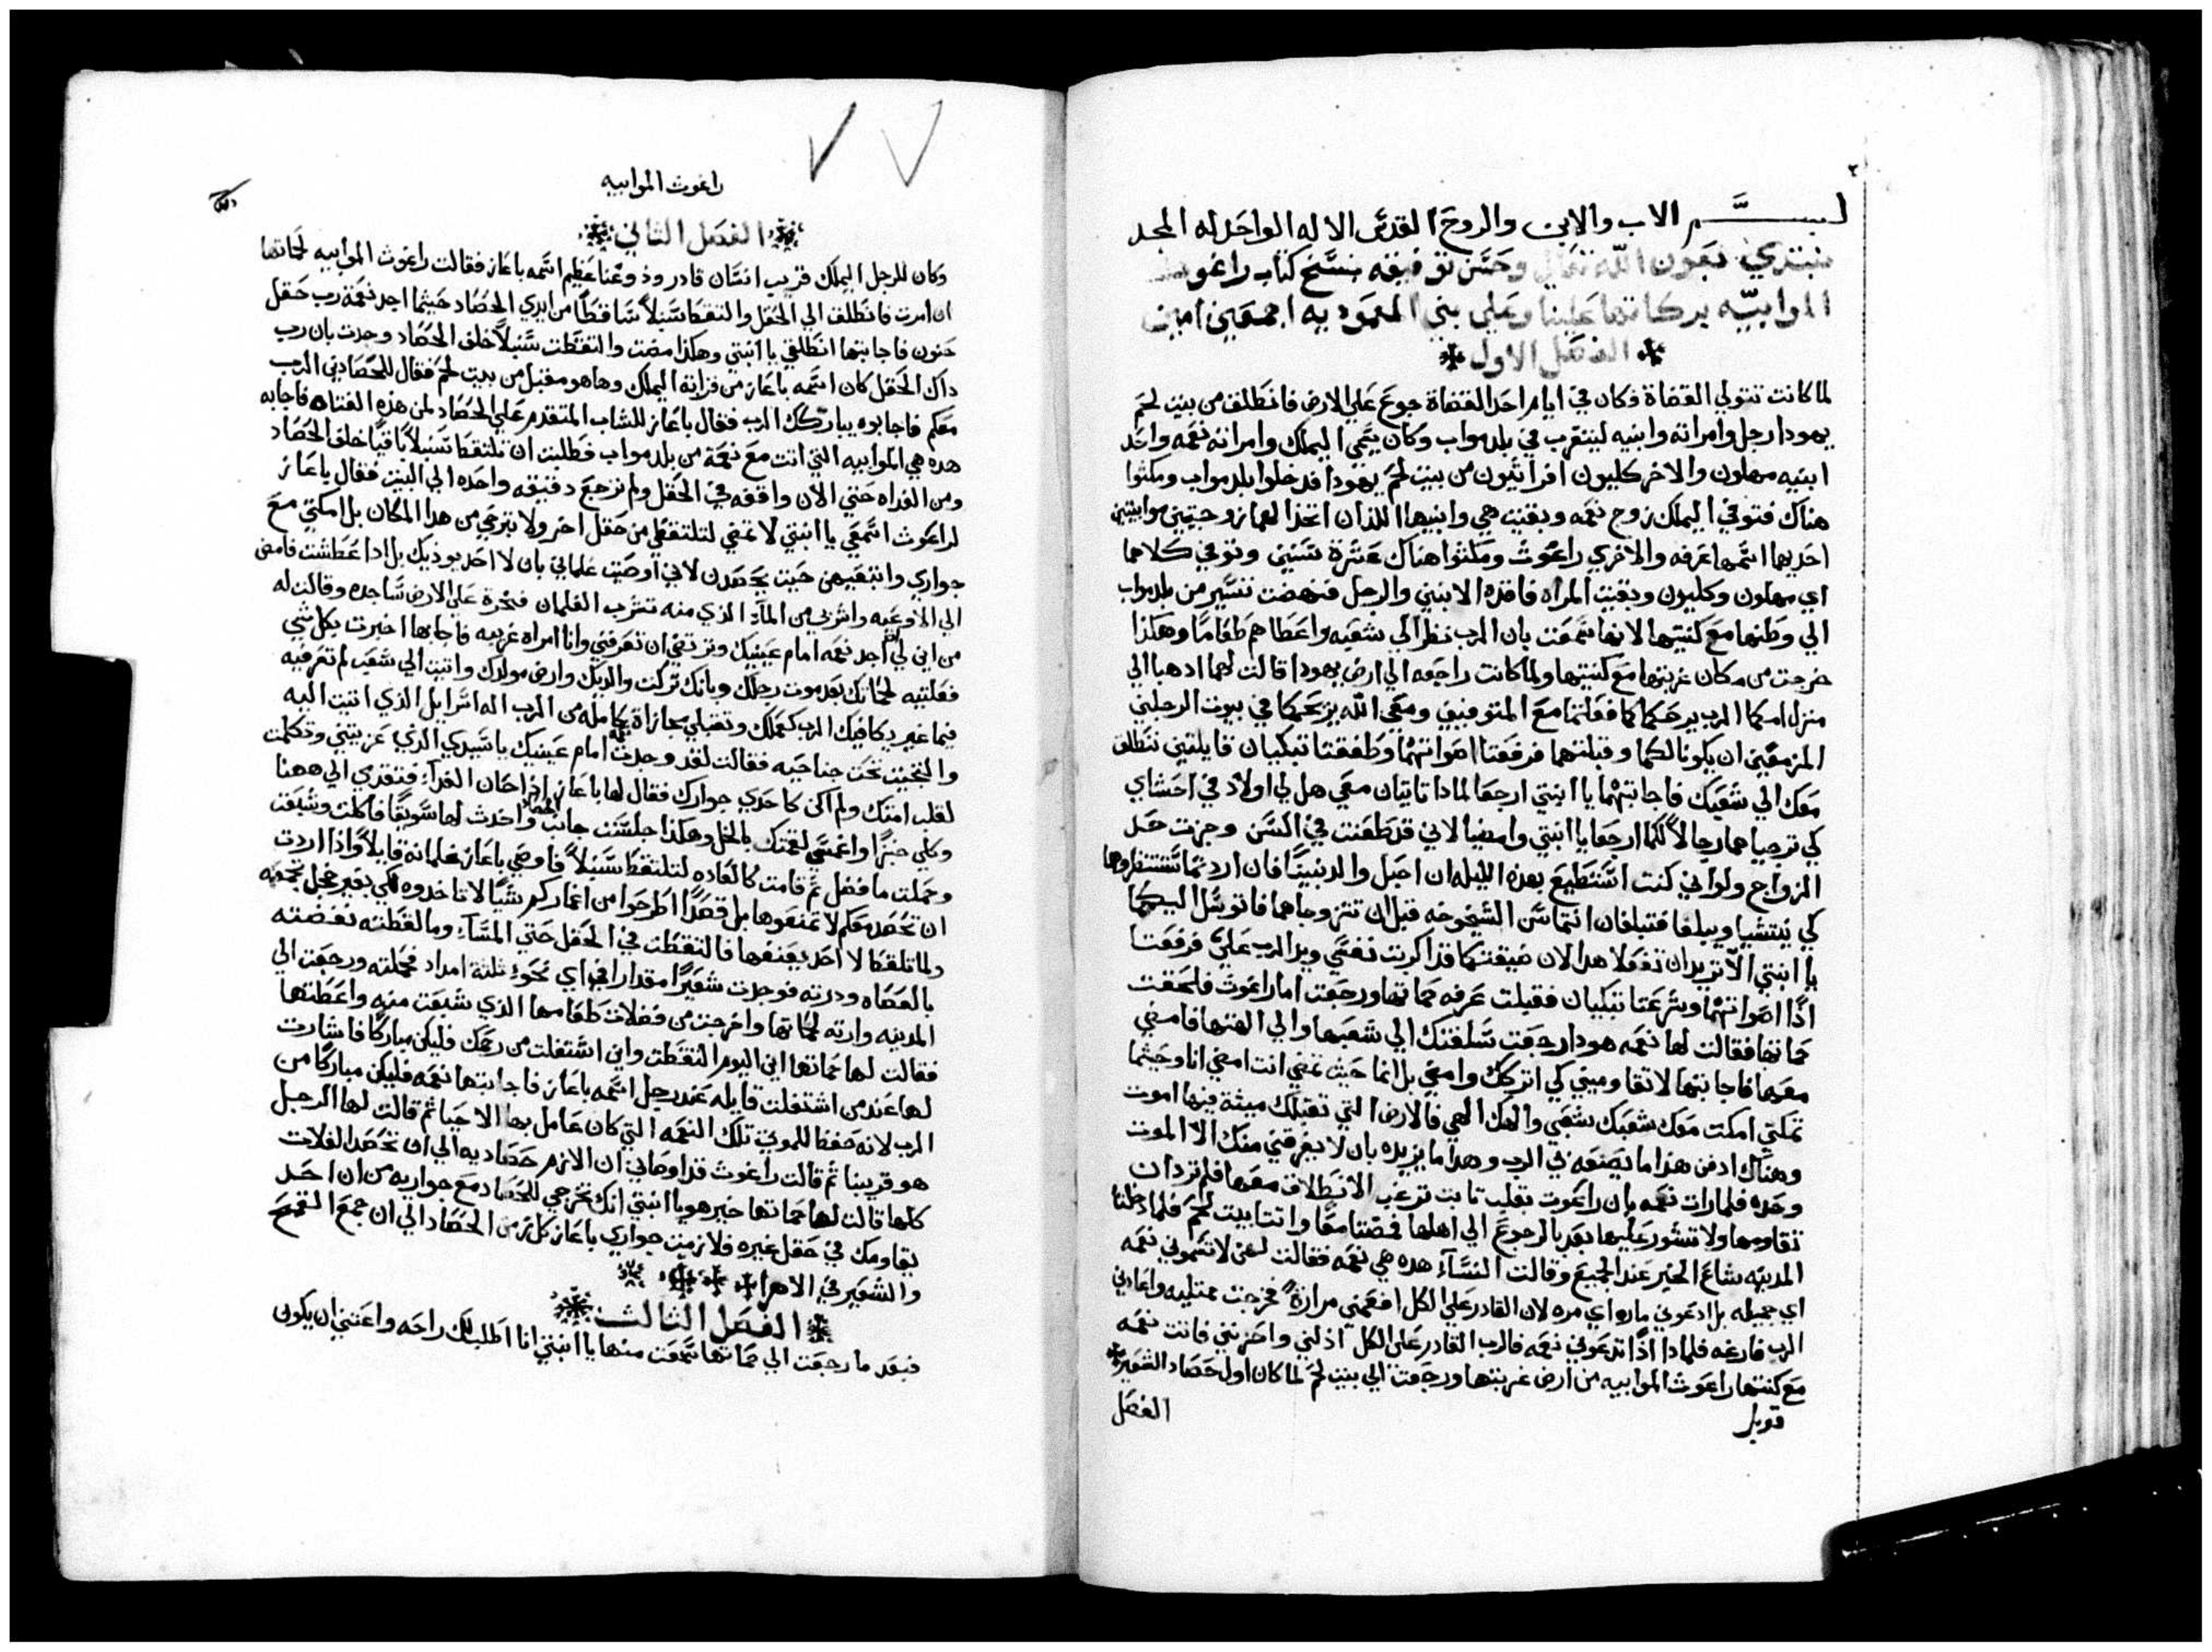 ٢
بسم الاب والابن والروح القدس الاله الواحد له المجد
نبتدي بعون الله تعالي وحسن توفيقه بنسخ كتاب راغوث
الموابيه بركاتها علينا وعلي بني المعموديه اجمعين امين
الفصل الاول
لما كانت تتولي القضاة فكان في ايام احد القضاة جوع علي الارض فانطلق من بيت لحم
يهودا رجل وامراته وابنيه ليتغرب في بلد مواب وكان يسمي اليملك وامراته نعمه واحد
ابنيه مهلون والاخر كليون افراتيون من بيت لحم يهودا فدخلوا بلد مواب ومكثوا
هناك فتوفي اليملك زوج نعمه وبقيت هي وابنيها اللذان اتخذا لهما زوجتين موابيتين
احديهما اسمها عرفه والاخري راعوث ومكثوا هناك عشرة سنين وتوفي كلاهما
اي مهلون وكليون وبقيت المراه فاقده الابنين والرجل فنهضت تسير من بلد مواب
الي وطنها مع كنتيها لانها سمعت بان الرب نظر الي شعبه واعطاهم طعاما وهكذا
خرجت من مكان غربتها مع كنتيها ولما كانت راجعه الي ارض يهودا قالت لهما ادهبا الي
منزل امكما الرب يرحمكما كما فعلتما مع المتوفيين ومعي الله يرحمكما في بيوت الرجلين
المزمعين ان يكونا لكما وقبلتهما فرفعتا اصواتهما وطفقتا تبكيان قايلتين ننطلق
معك الي شعبك فاجابتهما يا ابنتي ارجعا لماذا تاتيان معي هل لي اولاد في احشاي
كي ترجياهما رجالا لكما ارجعا يا ابنتي وامضيا لاني قد طعنت في السن وجزت حد
الزواج ولو اني كنت استطيع بهذه الليله ان احبل والد نبيتا فان اردتما تستنظروهما
كي ينتشيا ويبلغا فتبلغان انتما سن الشيخوخه قبل ان تتزوجاهما فاتوسل اليكما
يا ابنتي الا تريدان تفعلا هذا لان ضيقتكما قد اكربت نفسي ويد الرب علي فرفعتا
اذا اصواتهما وشرعتا تبكيان فقبلت عرفه حماتها ورجعت اما راعوث فلحقت
حماتها فقالت لها نعمه هوذا رجعت سلفتك الي شعبها والي الهتها فامضي
معها فاجابتها لا تقاوميني كي اتركك وامضي بل انما حيث تمضي انت امضي انا وحيثما
تمكثي امكث معك شعبك شعبي والهك الهي فالارض التي تقبلك ميتة فيها اموت
وهناك ادفن هذا ما يصنعه لي الرب وهذا ما يزيده بان لا يفرقني منك الا الموت
وحده فلما رات نعمه بان راعوت بقلب ثابت ترغب الانطلاق معها فلم ترد ان
تقاومها ولا تشور عليها بعد بالرجوع الي اهلها فمضتا معا واتتا بيت لحم فلما دخلتا
المدينه شاع الخبر عند الجميع وقالت النساء هذه هي نعمه فقالت لهن لا تسموني نعمه
اي جميله بل ادعوني ماروا اي مره لان القادر علي الكل افعمني مرارة فخرجت ممتليه واعادني
الرب فارغه فلماذا اذا تدعوني نعمه فالرب القادر علي الكل اذلني واحزنني فاتت نعمه
مع كنتها راعوث الموابيه من ارض غربتها ورجعت الي بيت لحم لما كان اول حصاد الشعير
قوبل
الفصل
راغوث الموابيه
الفصل الثاني
وكان للرجل اليملك قريب انسان قادر وذو غنا عظيم اسمه باعاز فقالت راعوث الموابيه لحماتها
ان امرت فانطلق الي الحقل والتقط سنبلا ساقطا من ايدي الحصاد حيثما اجد نعمة رب حقل
حنون فاجابتها انطلقي يا ابنتي وهكذا مضت والتقطت سنبلا خلف الحصاد وحدث بان رب
ذاك الحقل كان اسمه باعاز من قرابة اليملك وها هو مقبل من بيت لحم فقال للحصادين الرب
معكم فاجابوه يباركك الرب فقال باعاز للشاب المتقدم علي الحصاد لمن هذه الفتاه فاجابه
هذه هي الموابيه التي اتت مع نعمة من بلد مواب فطلبت ان تلتقط سنبلا باقيا خلف الحصاد
ومن الغداه حتي الان واقفه في الحقل ولم ترجع دقيقه واحده الي البيت فقال باعاز
لراعوث اسمعي يا ابنتي لا تمضي لتلتقطي من حقل اخر ولا تبرحي من هذا المكان بل امكثي مع
جواري واتبعيهن حيث يحصدن لاني اوصيت غلماني بان لا احد يوذيك بل اذا عطشت فامضي
الي الاوعيه واشربي من الماء الذي منه تشرب الغلمان فخرة علي الارض ساجده وقالت له
من اين لي ان اجد نعمه امام عينيك وترتضي ان تعرفني وانا امراه غريبه فاجابها اخبرت بكل شي
فعلتيه لحماتك بعد موت رجلك وبانك تركت والديك وارض مولدك واتيت الي شعب لم تعرفيه
فيما غبر يكافيك الرب كعملك وتقبلي مجازاة كامله من الرب اله اسرايل الذي اتيت اليه
والتجيت تحت جناحيه فقالت لقد وجدت نعمه امام عينيك يا سيدي الذي عزيتني وتكلمت
لقلب امتك ولم اكن كاحدي جوارك فقال لها باعاز اذا حان الغداء فتقدمي الي ههنا
وكلي خبزا واغمسي لقمتك بالخل وهكذا جلست جانب الحصاد واخذت لها سويقا فاكلت وشبعت
وحملت ما فضل ثم قامت كالعاده لتلتقط سنبلا فاوصي باعاز غلمانه قايلا واذا اردت
ان تحصد معكم لا تمنعوها بل قصدا اطرحوا من اغماركم شيا لا تاخذوه لكي بغير خجل تجمعه
ولما تلقط لا احد يعنفها فالتقطت في الحقل حتي المساء وما لقطته نفضته
بالعصاه ودرته فوجدت شعيرا مقدار افي اي نحو ثلثة امداد فحملته ورجعت الي
المدينه وارته لحماتها واخرجت من فضلات طعامها الذي شبعت منه واعطتها
فقالت لها حماتها اين اليوم التقطت واين اشتغلت من رحمك فليكن مباركا فاشارت
لها عند من اشتغلت قايله عند رجل اسمه باعاز فاجابتها نعمه فليكن مباركا من
الرب لانه حفظ للموتي تلك النعمه التي كان عامل بها الاحيا ثم قالت لها الرجل
هو قريبنا ثم قالت راعوث قد اوصاني ان الازم حصاديه الي ان تحصد الغلات
كلها قالت لها حماتها خير هو يا ابنتي انك تخرجي للحصاد مع جواريه من ان احد
يقاومك في حقل غيره فلازمت جواري باعاز كل زمن الحصاد الي ان جمع القمح
والشعير في الاهرا
الفصل الثالث
فبعد ما رجعت الي حماتها سمعت منها يا ابنتي انا اطلب لك راحه واعتني ان يكون